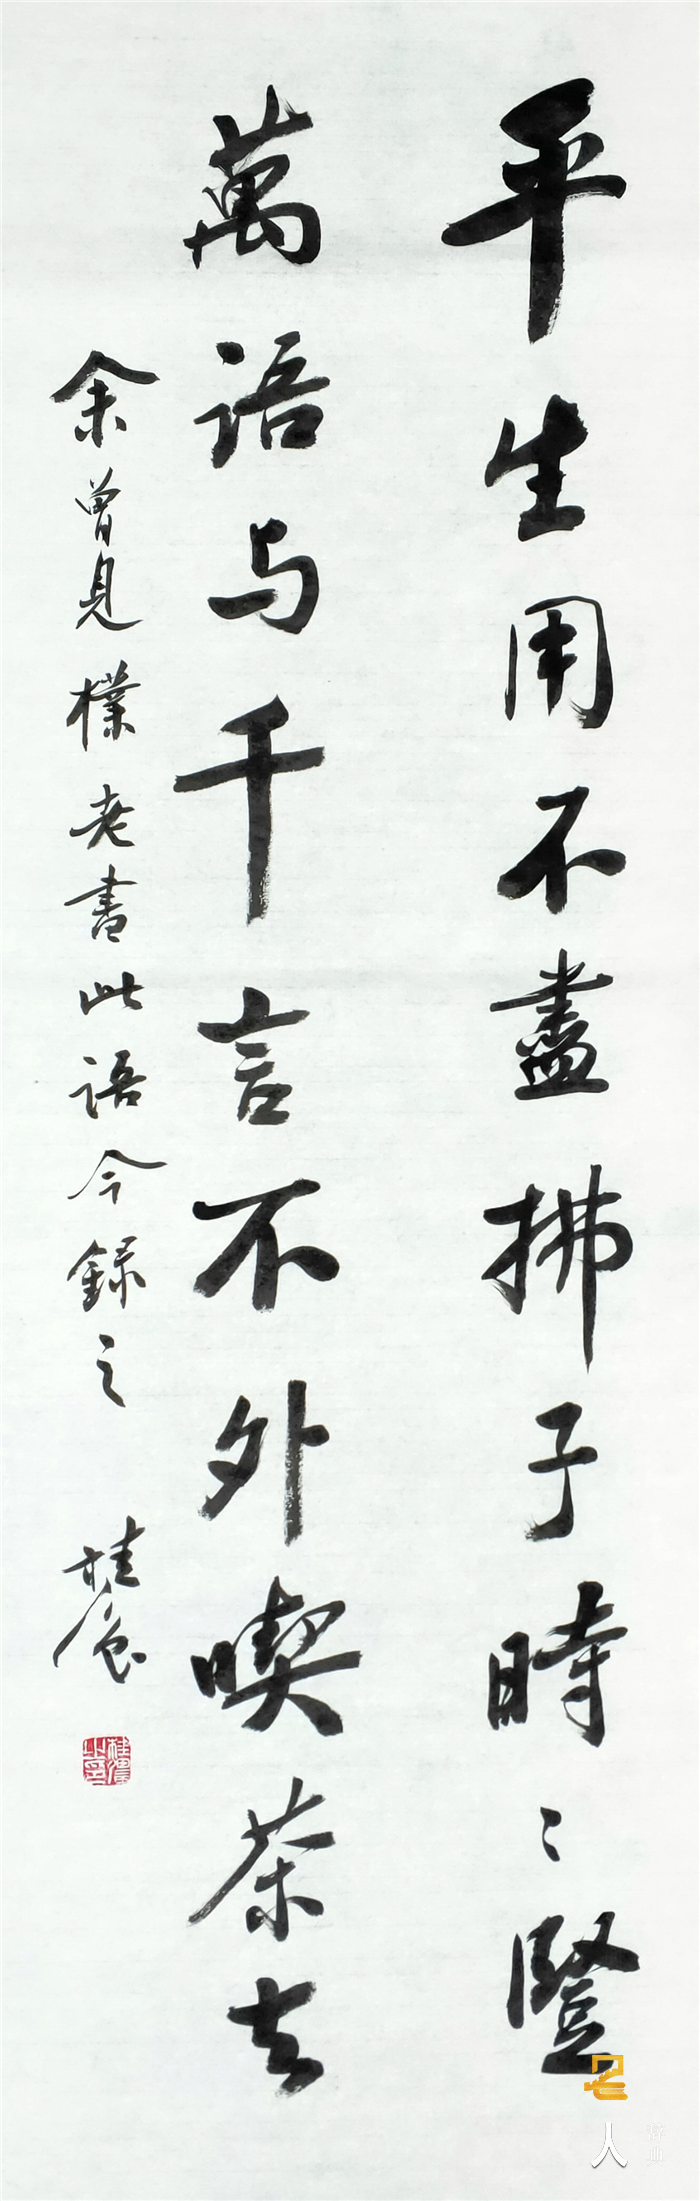 平生用不盡拂子時〻豎
萬語与千言不外喫茶去
余曾見樸老書此語今錄之
桂
人